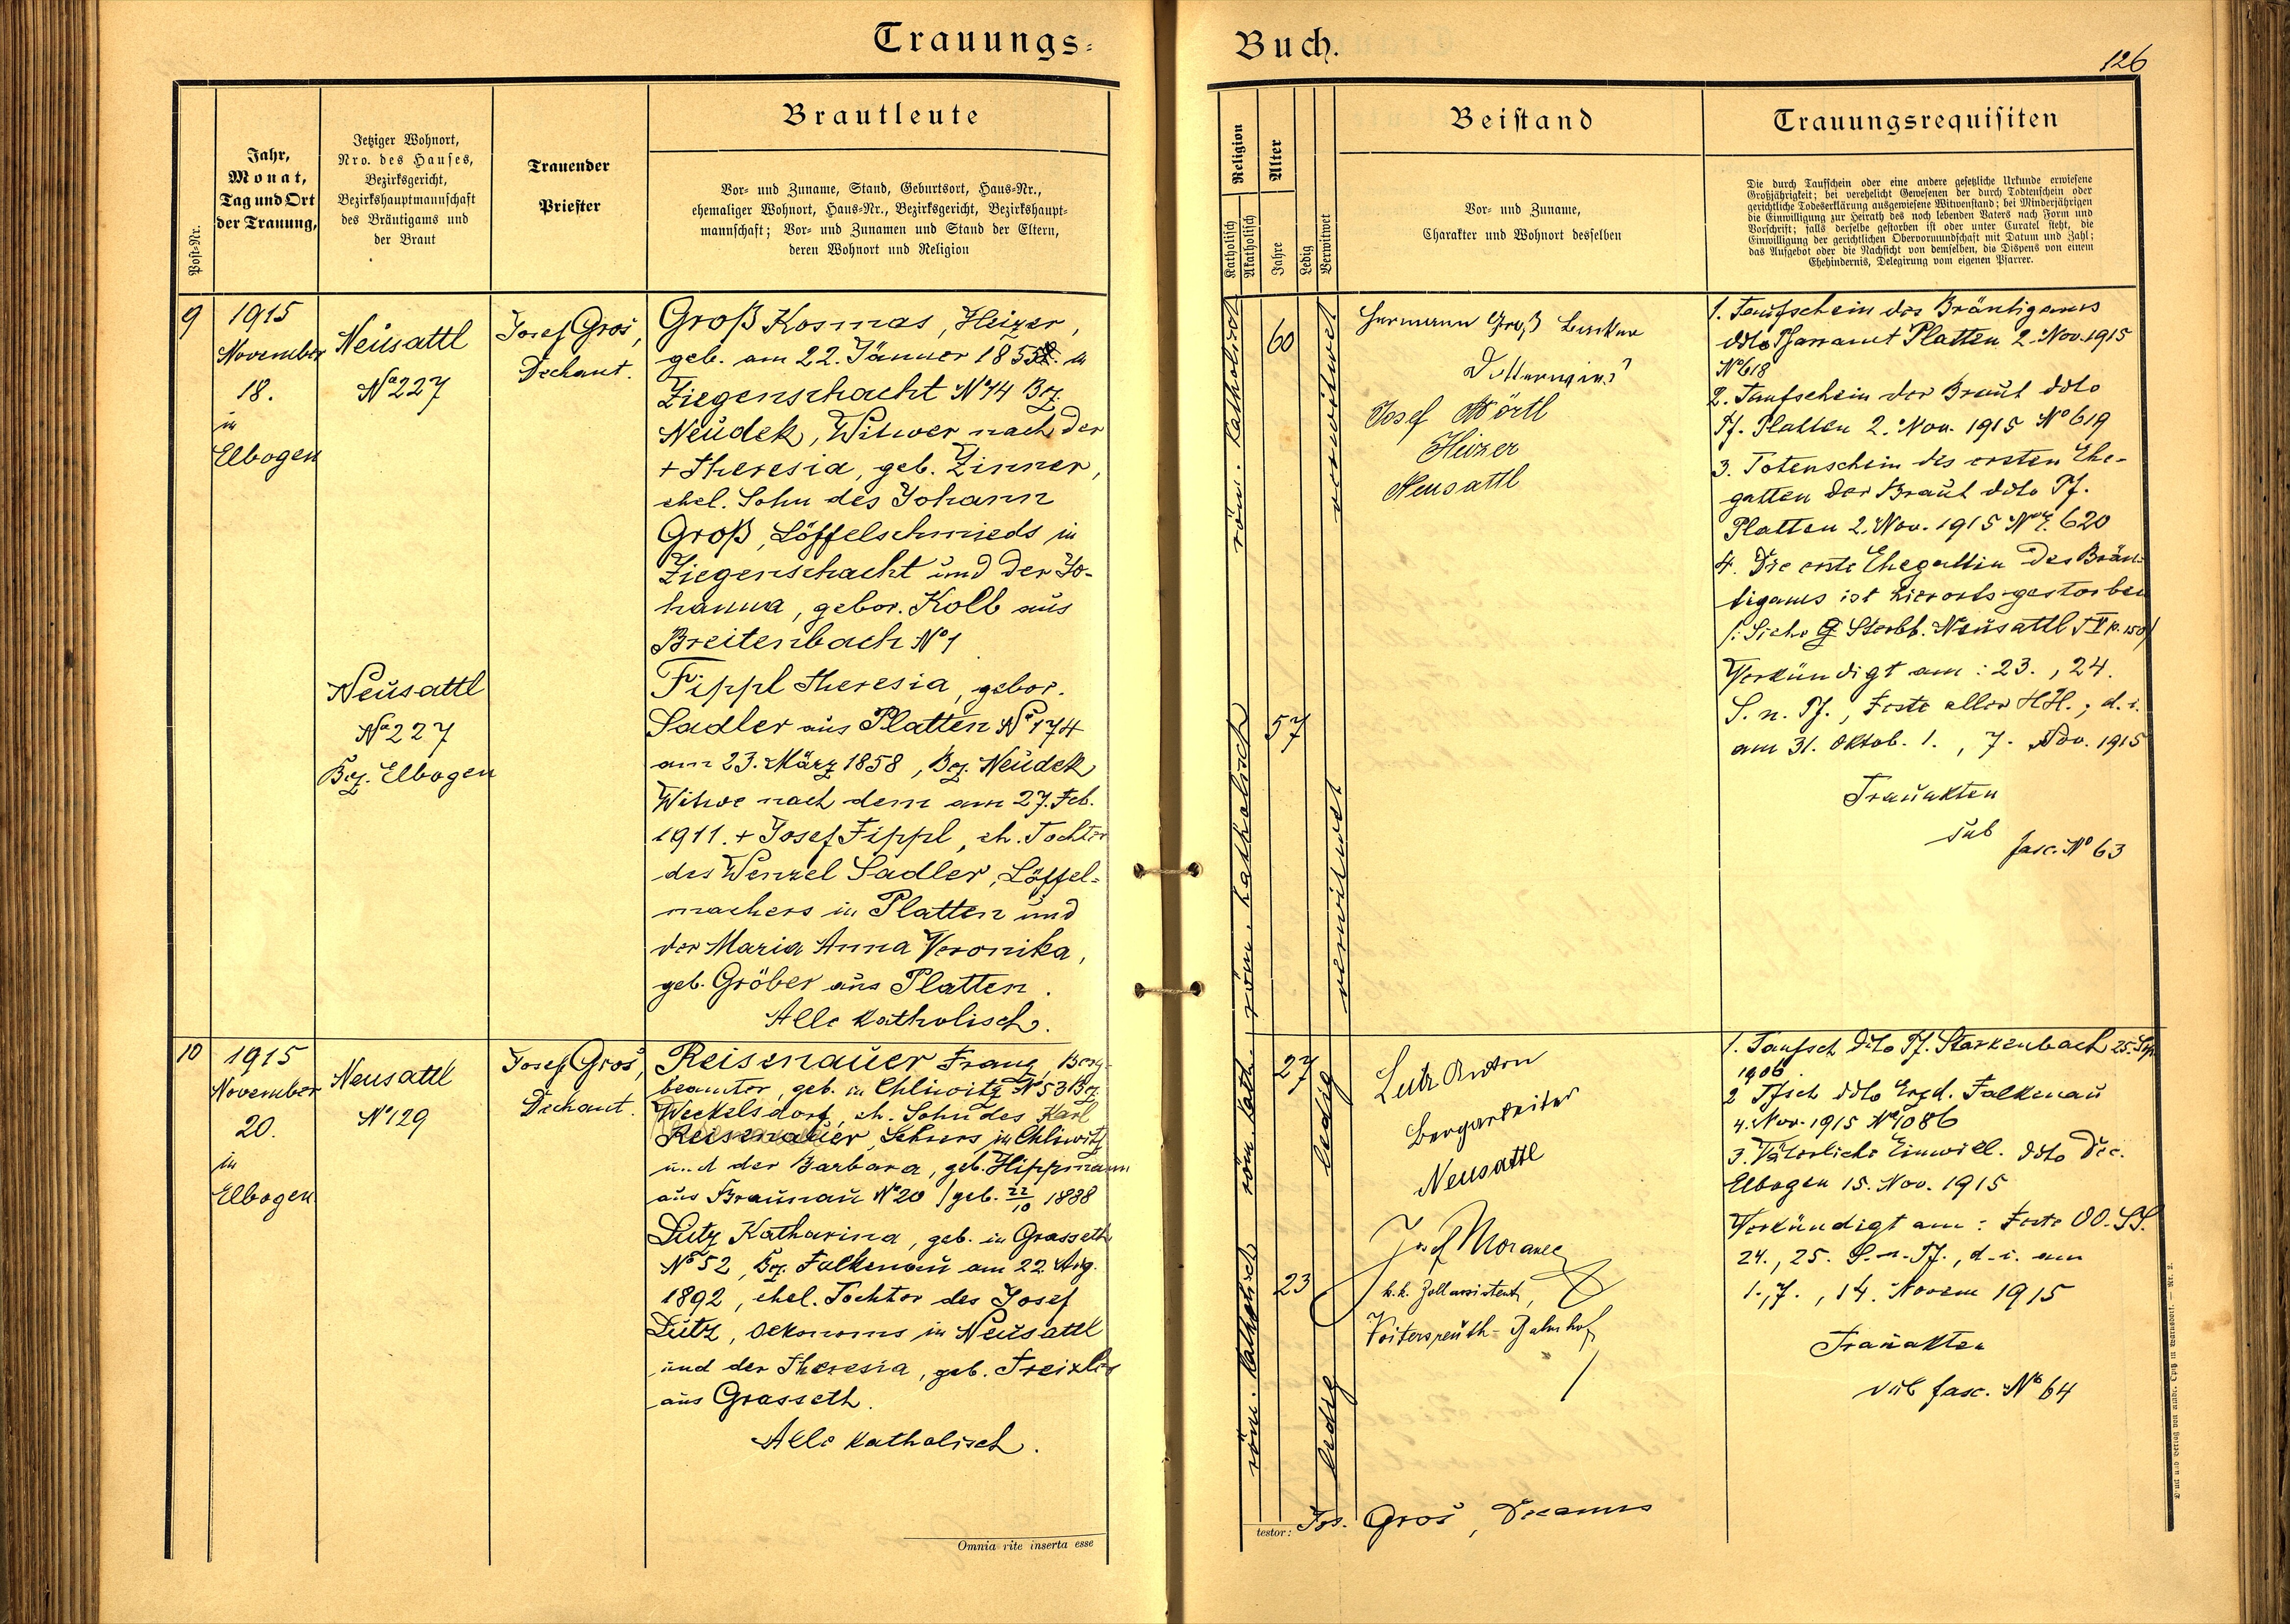 Trauungs-
Buch.
126
Post-Nr.
Jahr,
Monat,
Tag und Ort
der Trauung,
Jetziger Wohnort,
Nro. des Hauses,
Bezirksgericht,
Bezirkshauptmannschaft
des Bräutigams und
der Braut
Trauender
Priester
Brautleute
Vor- und Zuname, Stand, Geburtsort, Haus-Nr.,
ehemaliger Wohnort, Haus-Nr., Bezirksgericht, Bezirkshaupt-
mannschaft; Vor- und Zunamen und Stand der Eltern,
deren Wohnort und Religion
Religion
Katholisch
Akatholisch
Alter
Jahre
Ledig
Verwitwet
Beistand
Vor- und Zuname,
Charakter und Wohnort desselben
Trauungsrequisiten
Die durch Taufschein oder eine andere gesetzliche Urkunde erwiesene
Großjährigkeit; bei verehelicht Gewesenen der durch Todtenschein oder
gerichtliche Todeserklärung ausgewiesene Witwenstand; bei Minderjährigen
die Einwilligung zur Heirath des noch lebenden Vaters nach Form und
Vorschrift; falls derselbe gestorben ist oder unter Curatel steht, die
Einwilligung der gerichtlichen Obervormundschaft mit Datum und Zahl;
das Aufgebot oder die Nachsicht von demselben, die Dispens von einem
Ehehindernis, Delegirung vom eigenen Pfarrer.
9
1915
November
18.
in
Elbogen
Neusattl
No 227
Josef Groš,
Dechant.
Groß Kosmas, Heizer,
geb. am 22. Jänner 185
Ziegenschacht No 14 Bez.
Neudek, Witwer nach der
+ Theresia, geb. Zinner,
ehel. Sohn des Johann
Groß, Löffelschmieds in
Ziegenschacht und der Jo-
hanna, gebor. Kolb aus
Breitenbach No 1
Neusattl
No 227
Bez. Elbogen
Fippl Theresia, gebor.
Sadler aus Platten No 174
am 23. März 1858, Bez. Neudek
Witwe nach dem am 27. Feb.
1911. + Josef Fippl, eh. Tochter
des Wenzel Sadler, Löffel-
machers in Platten und
der Maria Anna Veronika,
geb. Gröber aus Platten.
Alle katholisch.
röm. katholisch
60
verwitwet
röm. katholisch
57
verwitwet
Hermann Groß
Josef Wörtl
Heizer
Neusattl
1. Taufschein des Bräutigams
ddto Pfarramt Platten 2. Nov. 1915
No 618
2. Taufschein der Braut ddto
Pf. Platten 2. Nov. 1915 No 619
3. Totenschein des ersten Ehe-
gatten der Braut ddto Pf.
Platten 2. Nov. 1915 No 620
4. Die erste Ehegattin des Bräu-
tigams ist hierorts gestorben
/: Siehe Sterbb. Neusattl
Verkündigt am: 23., 24.
S. n. Pf., Feste aller HH., d. i.
am 31. Oktob. 1., 7. Nov. 1915
Trauakten
sub
fasc. No 63
10
1915
November
20.
in
Elbogen
Neusattl
No 129
Josef Groš,
Dechant.
Reisenauer Franz, Berg-
beamter, geb. in Chliwitz No 53 Bez.
Weckelsdorf, eh. Sohn des Karl
Reisenauer, in Chliwitz
und der Barbara, geb. Hippmann
aus Braunau No 20 /geb. 22/10 1888
Lutz Katharina, geb. in Grasseth
No 52, Bez. Falkenau am 22. Aug.
1892, ehel. Tochter des Josef
Lutz, Oekonoms in Neusattl
und der Theresia, geb.
aus Grasseth.
Alle katholisch.
röm. kath.
27
ledig
röm. katholisch
23
ledig
Lutz Anton
Bergarbeiter
Neusattl
Josef Moravec
k.k. Zollassistent,
Voitersreuth-Bahnhof
1. Taufsch ddto Pf. Starkenbach 25. Sep.
1906
2 Tfsch ddto Erzd. Falkenau
4. Nov. 1915 No 1086
3. Väterliche Einwill. ddto Dec.
Elbogen 15. Nov. 1915
Verkündigt am: Feste OO. SS.
24., 25. S. n. Pf., d. i. am
1., 7., 14. Novem 1915
Trauakten
sub fasc. No 64
Omnia rite inserta esse
testor: Jos. Groš, Decanus